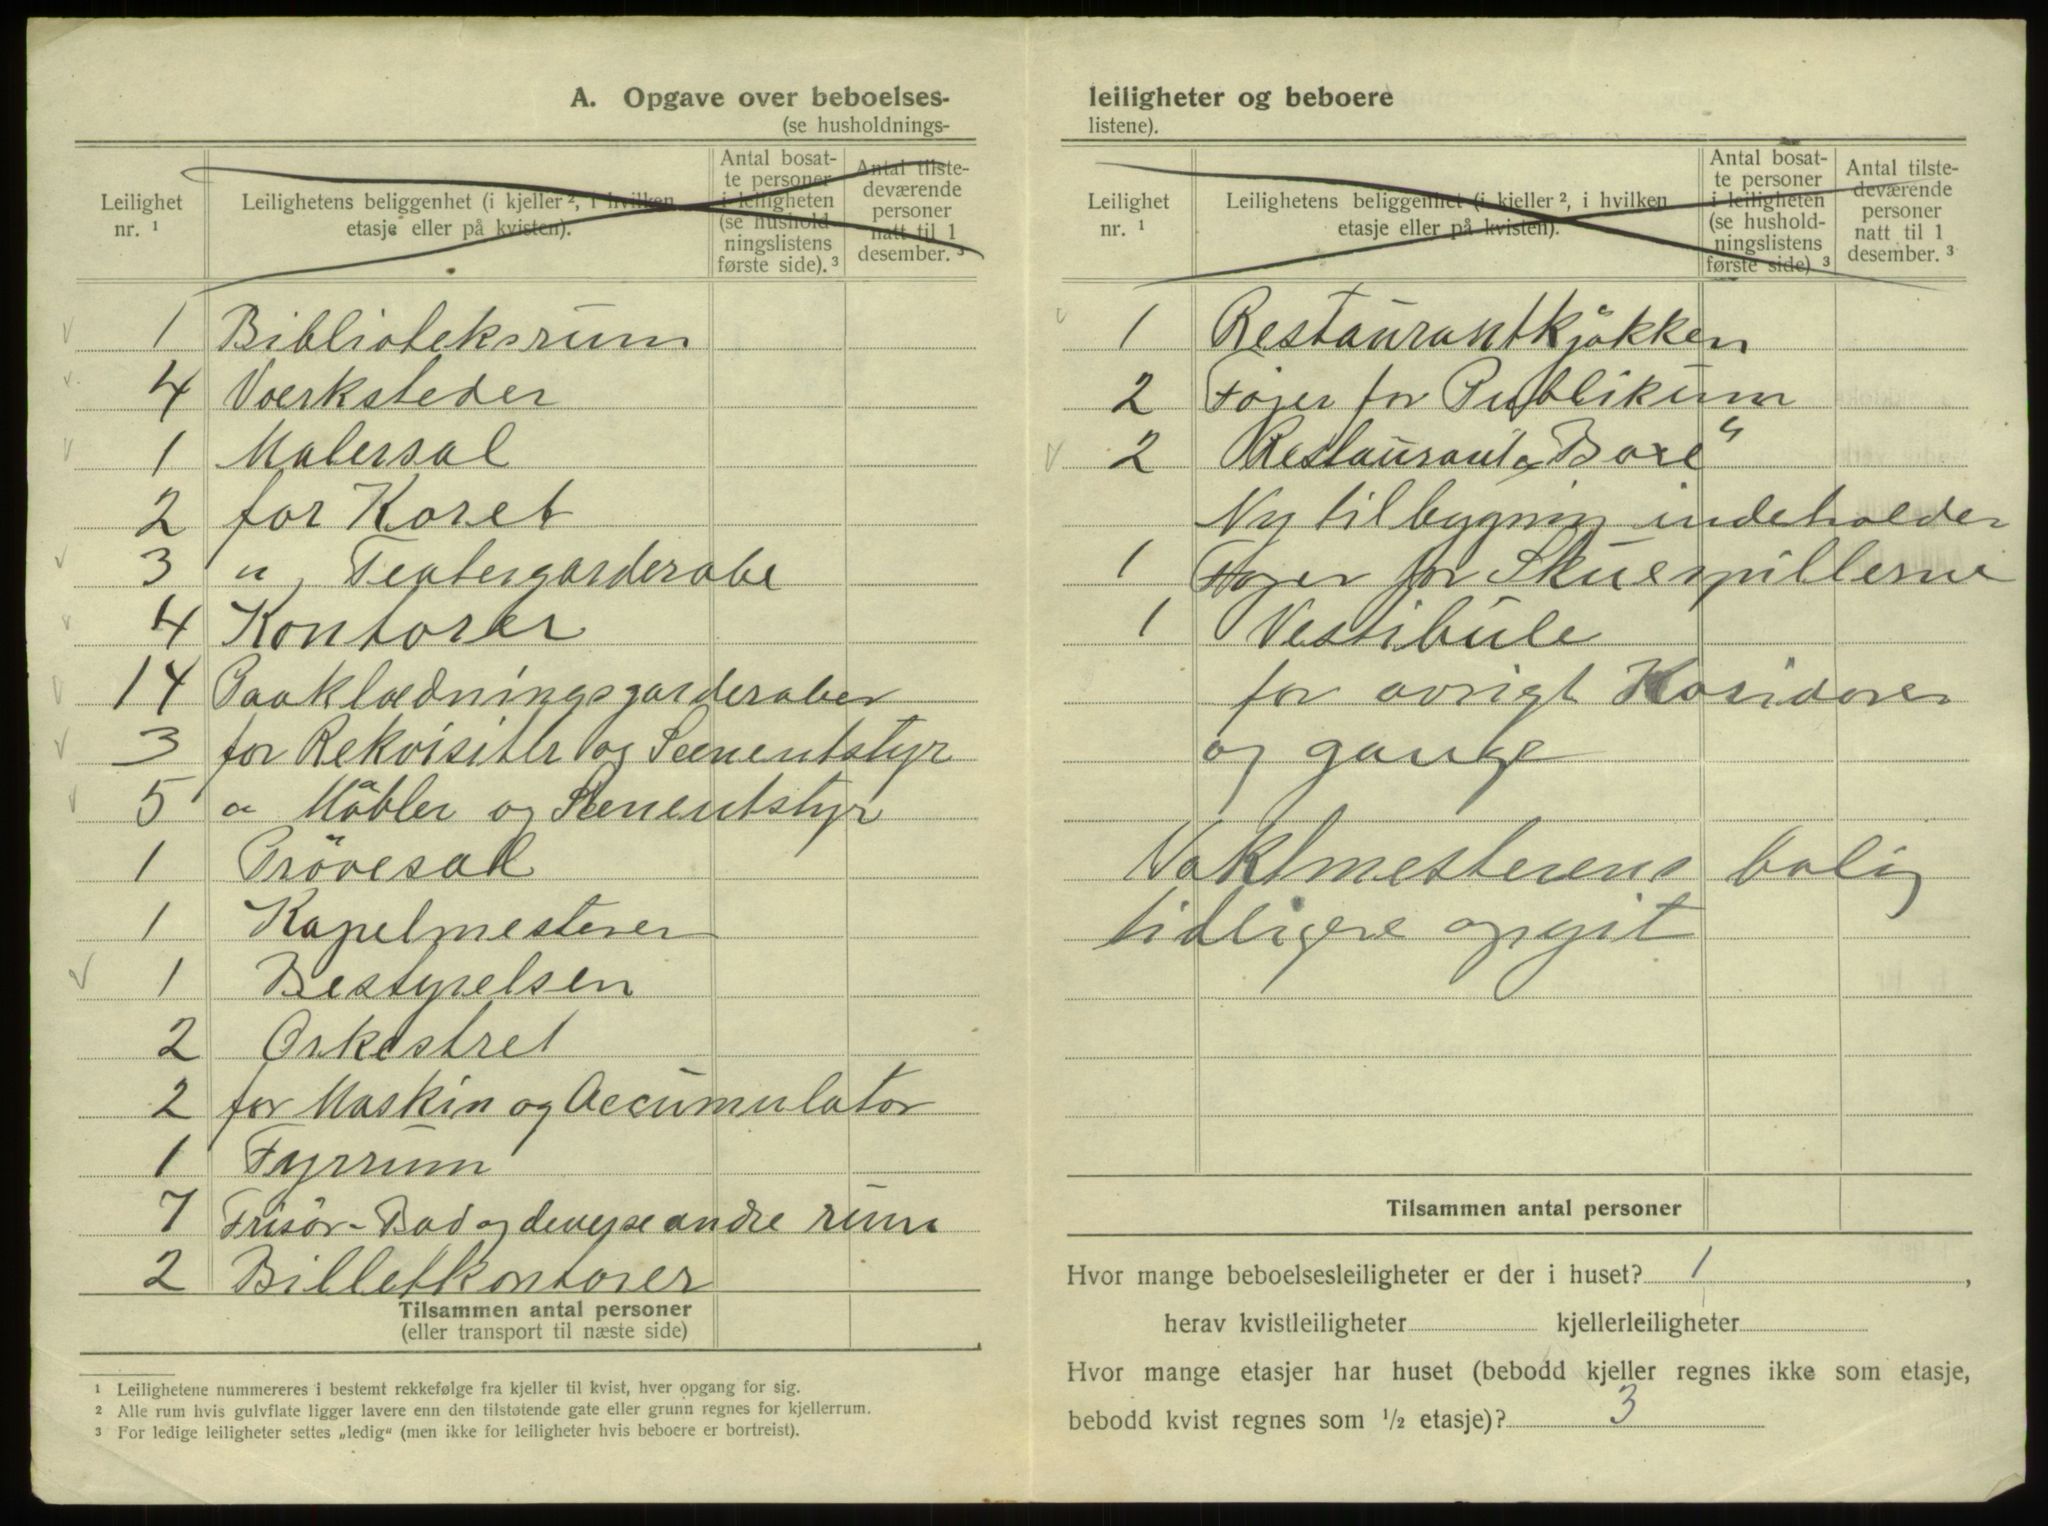 A. Opgave over beboelses-
(se husholdnings-
Leilighet nr. ¹
Leilighetens beliggenhet (i kjeller ², i hvilken etasje eller på kvisten).
Antal bosatte personer i leiligheten (se husholdningslistens første side). ³
Antal tilstedeværende personer natt til 1 desember. ³
1 Biblioteksrum
4 Værksteder
1 Malersal
2 for Koret
3 " " Teatergarderobe
4 Kontorer
14 Paaklædningsgarderober
3 for Rekvisiter og Sceneutstyr
5 " Møbler og Sceneutstyr
1 Prövesal
1 Kapelmesteren
1 Bestyrelsen
2 Orkestret
2 for Maskin og Accumulator
1 Fyrrum
7 Frisör- Bad og deverse andre rum
2 Billetkontorer
Tilsammen antal personer
(eller transport til næste side)
¹ Leilighetene nummereres i bestemt rekkefølge fra kjeller til kvist, hver opgang for sig.
² Alle rum hvis gulvflate ligger lavere enn den tilstøtende gate eller grunn regnes for kjellerrum.
³ For ledige leiligheter settes „ledig" (men ikke for leiligheter hvis beboere er bortreist).
leiligheter og beboere
listene).
Leilighet nr. ¹
Leilighetens beliggenhet (i kjeller ², i hvilken etasje eller på kvisten).
Antal bosatte personer i leiligheten (se husholdningslistens første side) ³
Antal tilstedeværende personer natt til 1 desember. ³
1 Restaurantkjøkken
2 Fojer for Publikum
2 Restaurant "
Ny tilbygning indeholder
1 Fojer for Skuespillerne
1 Vestibüle
for øvrigt Koridorer
og gange
Vaktmesterens bolig
tidligere opgit
Tilsammen antal personer
Hvor mange beboelsesleiligheter er der i huset? 1,
herav kvistleiligheter kjellerleiligheter
Hvor mange etasjer har huset (bebodd kjeller regnes ikke som etasje,
bebodd kvist regnes som ½ etasje)? 3